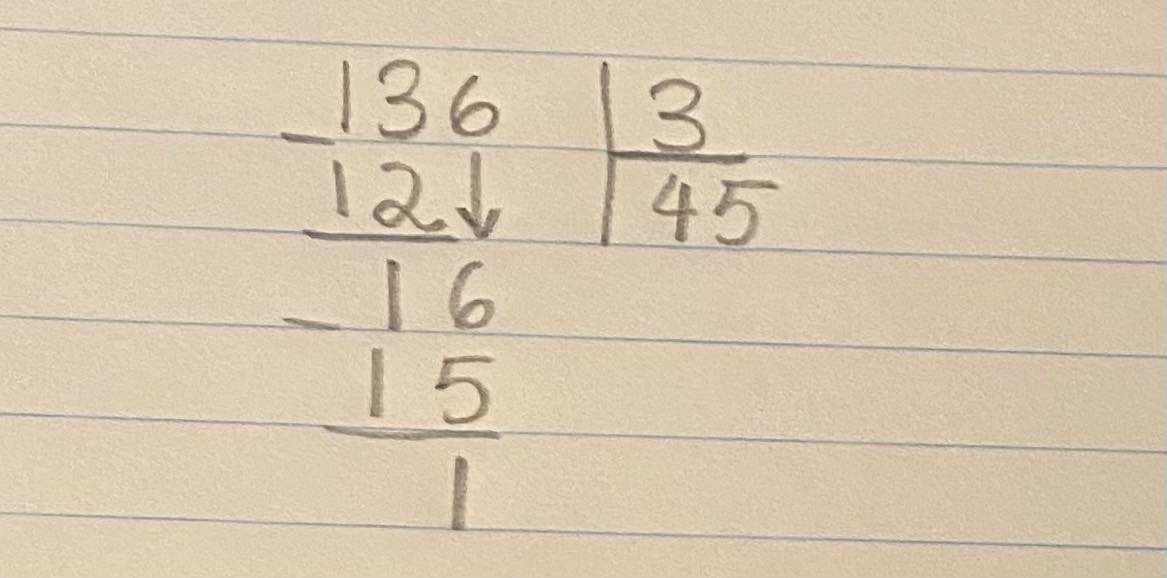 -136 | 3
12↓ | 45
-16
15
1